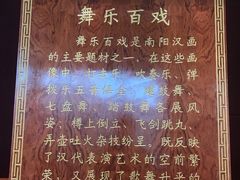 舞乐百戏
舞乐百戏是南阳汉画
的主要题材之一，在这些画
像中，七击乐、吹奏乐、弹
拨乐五音俱全，建鼓舞、
七盘舞、踏鼓舞各展风
姿、樽上倒立、飞剑跳丸、
弄壶吐火杂技纷呈，既反映
了汉代表演艺术的空前繁
荣，又展现了歌舞升平的